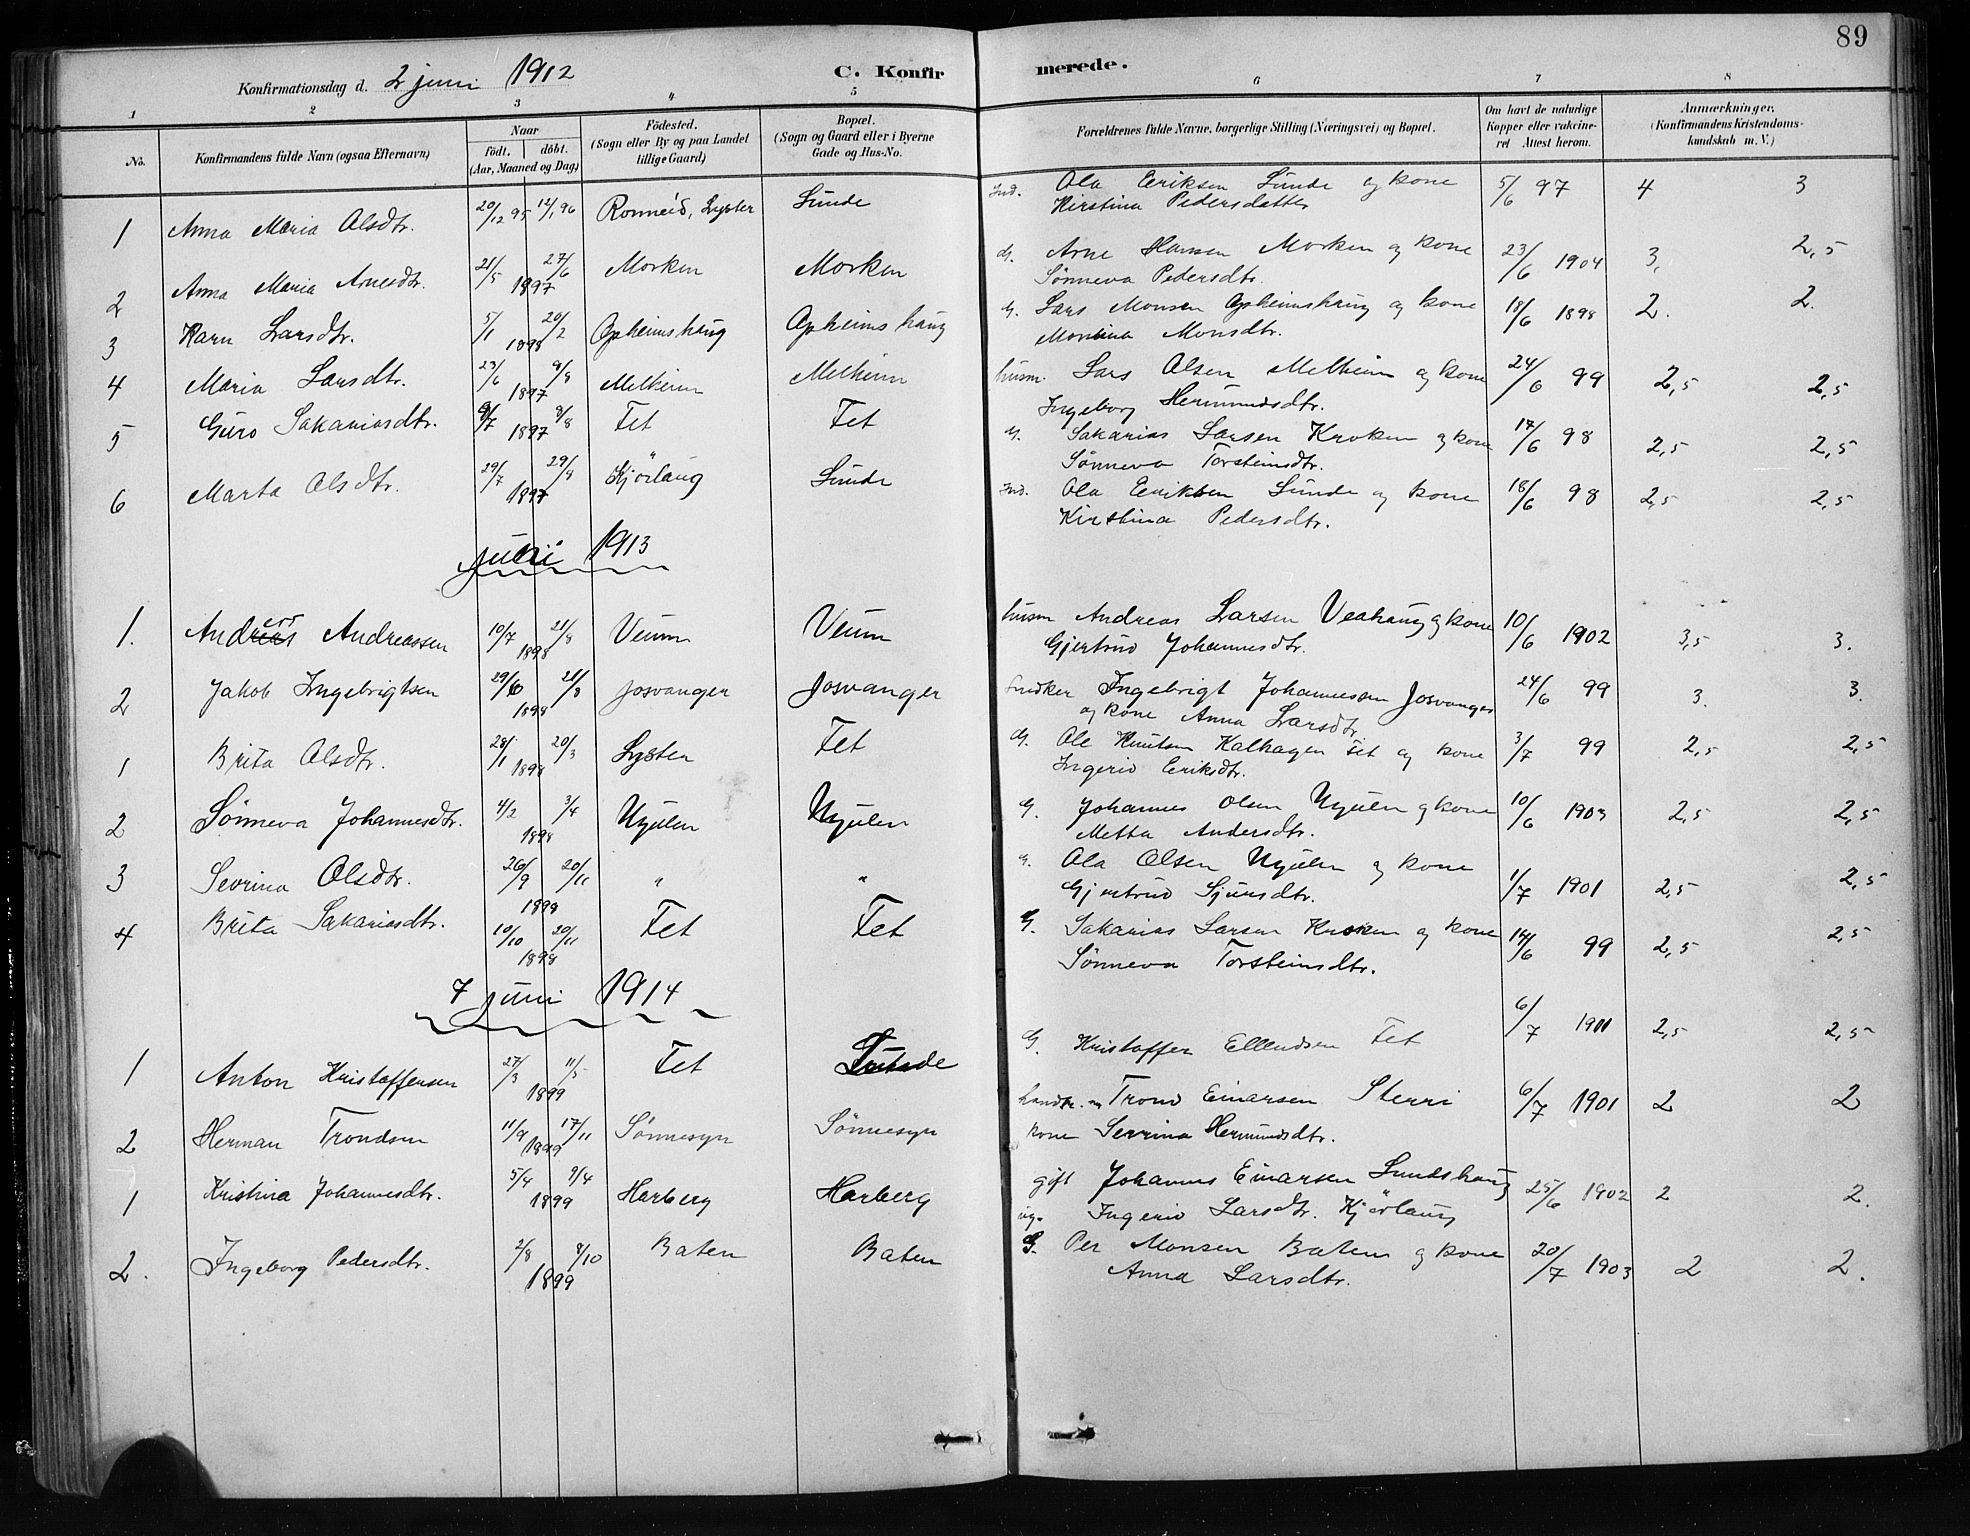 89
Konfirmationsdag d. 2 juni 1912
C. Konfir merede.
1 2 3 4 5 6 7 8
No. Konfirmandens fulde Navn (ogsaa Efternavn) Naar födt. döbt. (Aar, Maaned og Dag) Födested. (Sogn eller By og paa Landet tillige Gaard) Bopæl. (Sogn og Gaard eller i Byerne Gade og Hus-No. Forældrenes fulde Navne, borgerlige Stilling (Næringsvei) og Bopæl. Om havt de naturlige Kopper eller vaccineret Attest herom. Anmærkninger. (Konfirmandens Kristendomskundskab m. V.)
1 Anna Maria Olsdtr. 20/12 95 12/1 96 Ronneid, Lyster Sunde Ind. Ola Eriksen Sunde og kone Kirstina Pedersdatter 5/6 97 4 3
2 Anna Maria Arnesdtr. 21/5 27/6 1897 Morken Morken G. Arne Hansen Morken og kone Sønneva Pedersdtr. 23/6 1904 3, 2,5
3 Karn Larsdtr. 5/1 20/2 1898 Opheimshaug Opheimshaug G. Lars Monsen Opheimshaug og kone Monsdtr. 18/6 1898 2. 2.
4 Maria Larsdtr. 23/6 8/8 1897 Melheim Melheim husm. Lars Olsen Melheim og kone Ingeborg Hermundsdtr. 24/6 99 2,5 2,5
5 Guro Sakariasdtr. 9/7 8/8 1897 Fet Fet G. Sakarias Larsen Kroken og kone Sønneva Torsteinsdtr. 17/6 98 2,5 2,5
6 Marta Olsdtr. 29/7 29/8 1897 Kjörlaug Sunde Ind. Ola Eriksen Sunde og kone Kirstina Pedersdtr. 18/6 98 2,5 2,5
juni 1913
1. Anders Andreassen 10/7 21/8 1898 Veum Veum husm Andreas Larsen Veahaug og kone Gjertrud Johannesdtr. 10/6 1902 3,5 3.
2 Jakob Ingebrigtsen 29/6 21/8 1898 Josvanger Josvanger Snedker Ingebrigt Johannessen Josvanger og kone Anna Larsdtr 24/6 99 3. 3.
1 Brita Olsdtr. 28/1 20/3 1898 Lyster Fet G. Ole Knutsen Kalhagen Fet og kone Ingerid Eriksdtr. 3/7 99 2,5 2,5
2 Sönneva Johannesdtr. 4/2 3/4 1898 Nyulen Nyulen G. Johannes Olsen Nyulen og kone Metta Andersdtr. 10/6 1903 2,5 2,5
3 Sevrina Olsdtr. 26/9 20/11 1898 " " G. Ola Olsen Nyulen og kone Gjertrud Sjursdtr. 1/7 1901 2,5 2,5
4 Brita Sakariasdtr. 10/10 20/11 1898 Fet Fet G. Sakarias Larsen Kroken og kone Sönneva Torsteinsdtr. 14/6 99 2,5 2,5
7 juni 1914
1 Anton Kristoffersen 27/3 11/5 1899 Fet G. Kristoffer Ellendsen Fet 6/7 1901 2,5 2,5
2 Herman Trondsen 11/9 17/11 1899 Sönnesyn Sönnesyn Trond Einarsen Sterri kone Sevrina Hermundsdtr. 6/7 1901 2 2
1 Kristina Johannesdtr. 5/4 9/4 1899 Harberg Harberg gift Johannes Einarsen Sundshaug ug. Ingerid Larsdtr. Kjörlaug 25/6 1902 2 2.
2. Ingeborg Pedersdtr. 2/8 8/10 1899 Baten Baten G. Per Monsen Baten og kone Anna Larsdtr. 20/7 1903 2 2.